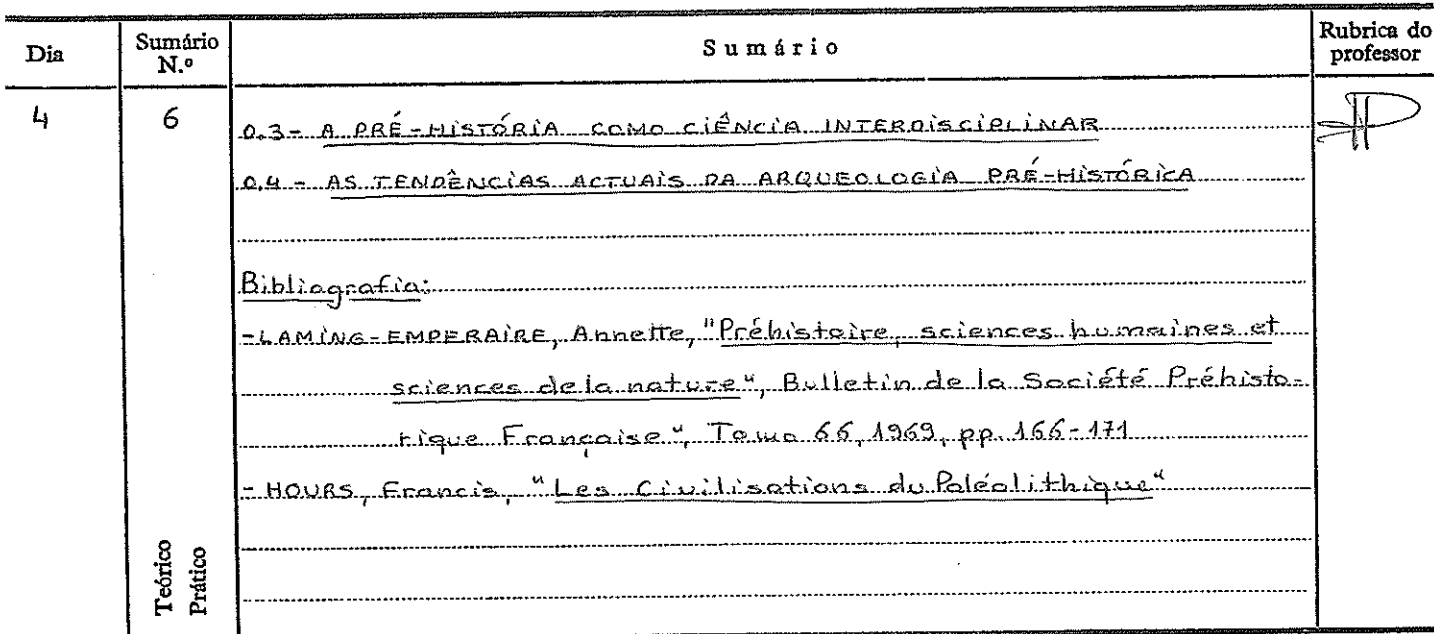 Dia
Sumário N.º
Sumário
Rubrica do professor
4
6
0.3- A PRÉ-HISTÓRIA COMO CIÊNCIA INTERDISCIPLINAR
0.4 - AS TENDÊNCIAS ACTUAIS DA ARQUEOLOGIA PRÉ-HISTÓRICA
Bibliografia:
-LAMING-EMPERAIRE, Annette, "Préhistoire, sciences humaines et
sciences de la nature", Bulletin de la Société Préhisto-
rique Française", Tomo 66, 1969, pp. 166-171
- HOURS, Francis, "Les Civilisations du Paléolithique"
Teórico
Prático